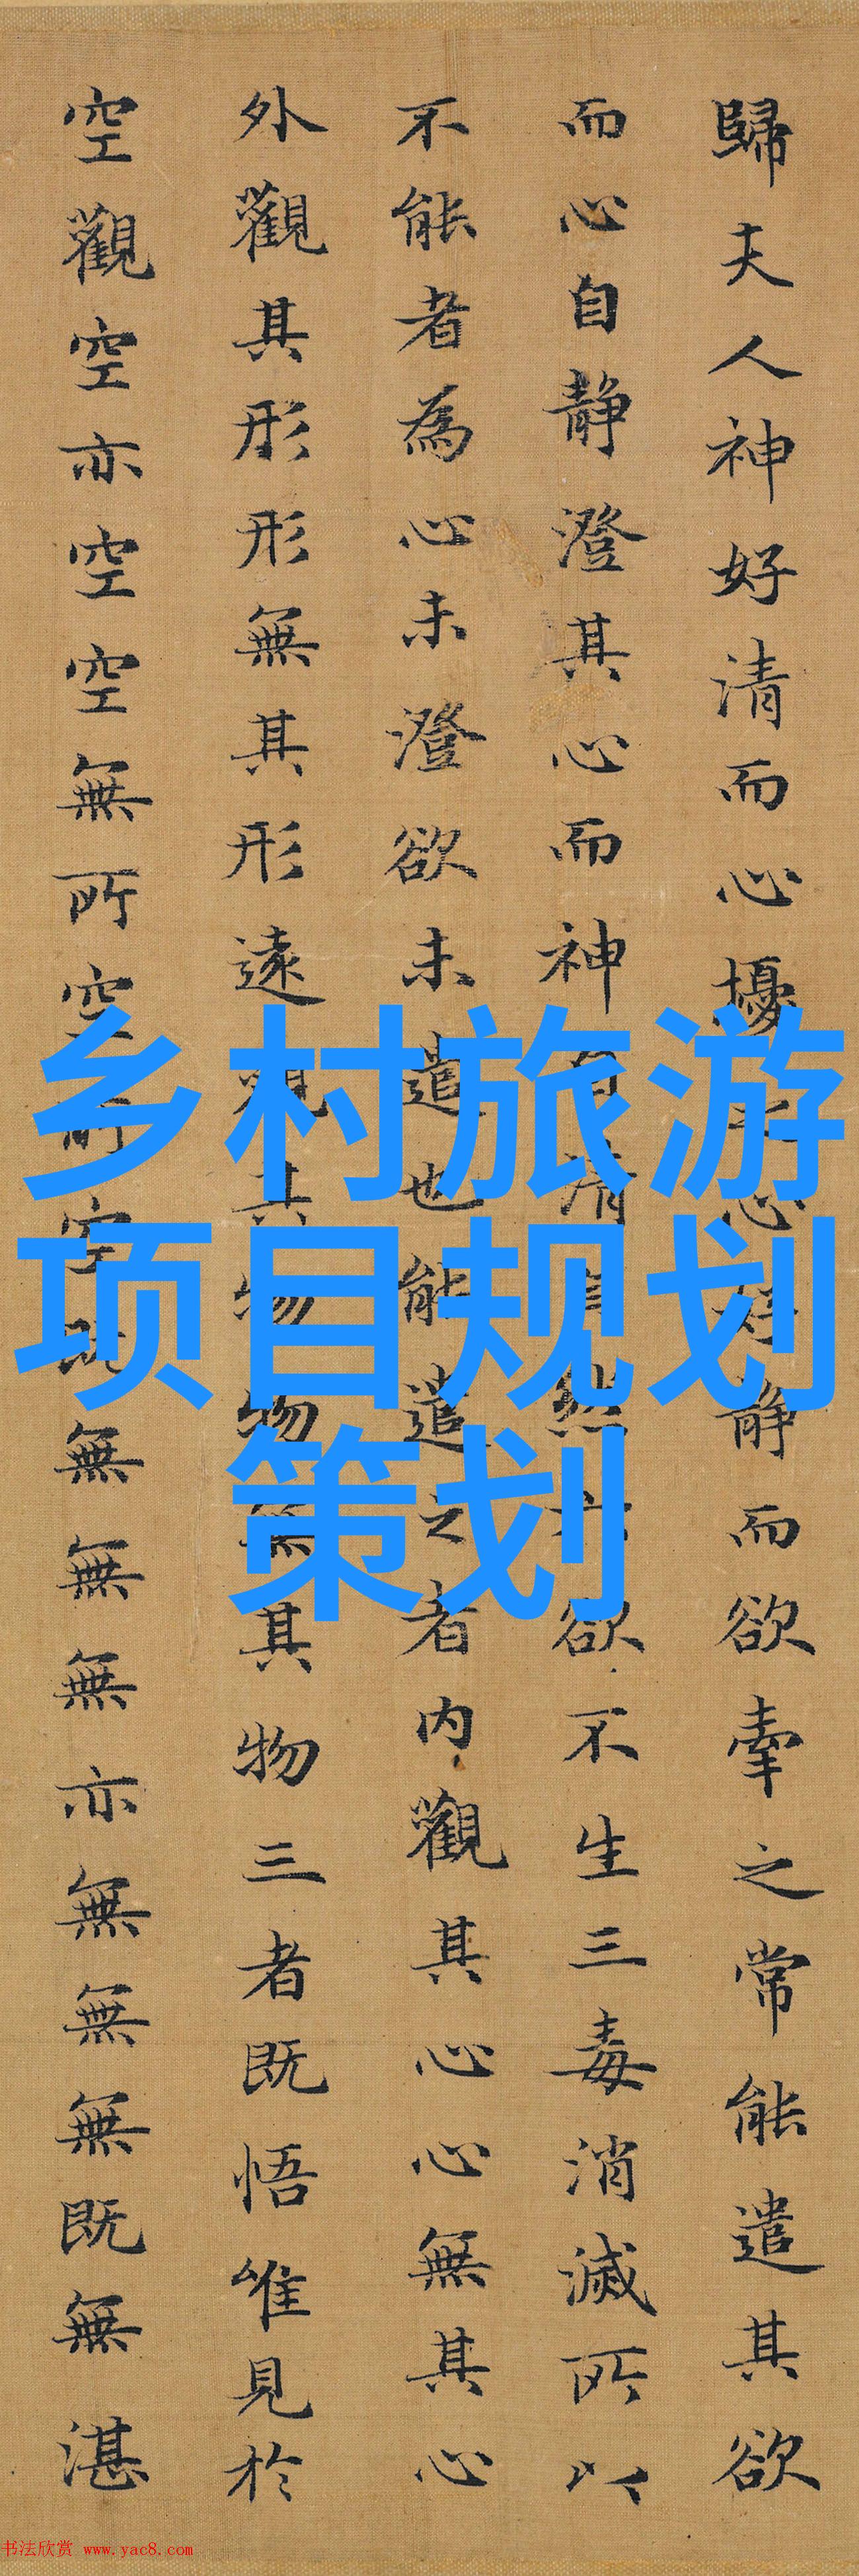 歸夫人神好清而心擾之心好静而欲牽之常能遣其欲
而心自静澄其心而神自清自然六欲不生三毒消滅所以
不能者為心未澄欲未遣也能遣之者内觀其心心無其心
外觀其形形無其形遠觀其物物無其物三者既悟唯見於
空觀空亦空空無所空所空既無無無亦無無無既無湛
乡村旅游
项目规划
策划
书法欣赏 www.yac8.com